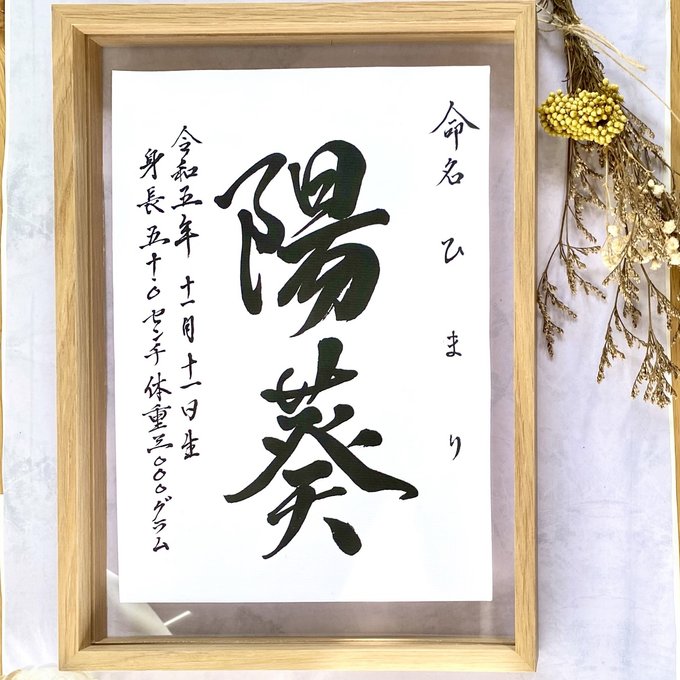 命名 ひまり
陽葵
令和五年 十一月 十一日生
身長 五十.〇センチ 体重 三〇〇〇グラム